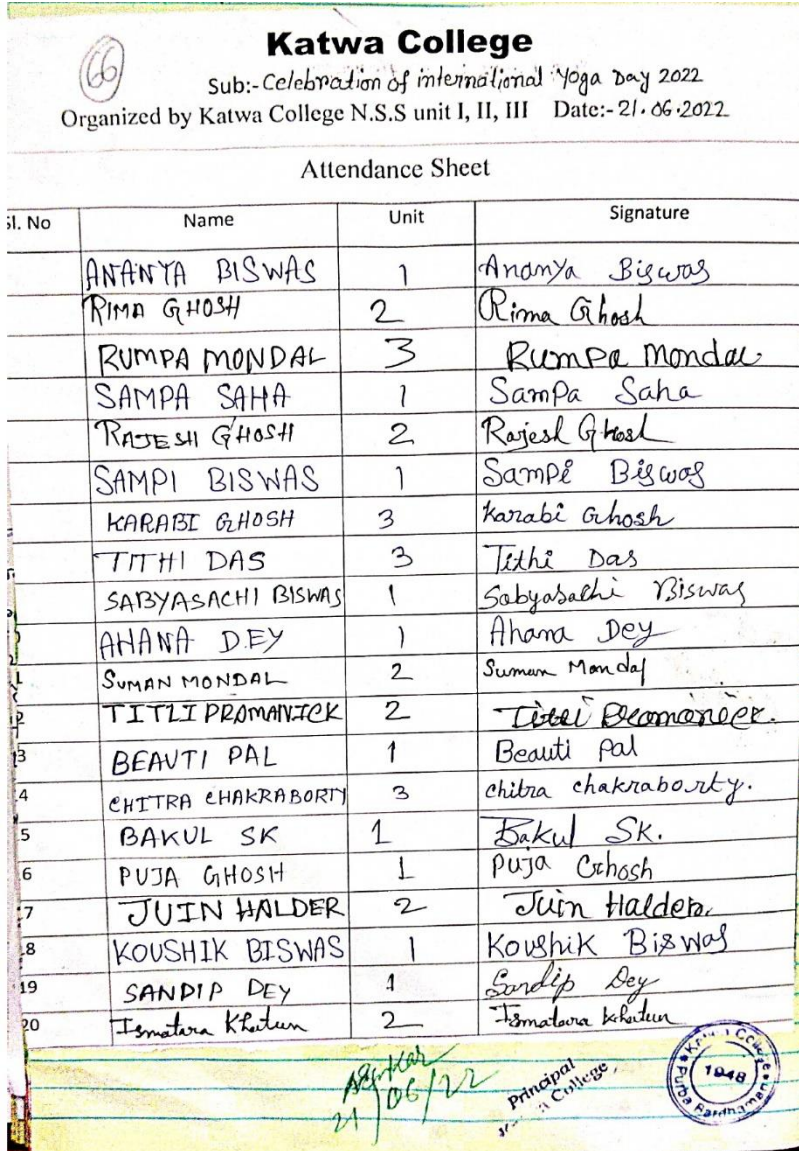 66
Katwa College
Sub:- Celebration of international Yoga Day 2022
Organized by Katwa College N.S.S unit I, II, III Date:- 21.06.2022
Attendance Sheet
Sl. No Name Unit Signature
ANANYA BISWAS 1 Ananya Biswas
RIMA GHOSH 2 Rima Ghosh
RUMPA MONDAL 3 Rumpa Mondal
SAMPA SAHA 1 Sampa Saha
RAJESH GHOSH 2 Rajesh Ghosh
SAMPI BISWAS 1 Sampi Biswas
KARABI GHOSH 3 Karabi Ghosh
TITHI DAS 3 Tithi Das
SABYASACHI BISWAS 1 Sabyasachi Biswas
AHANA DEY 1 Ahana Dey
1 SUMAN MONDAL 2 Suman Mondal
2 TITLI PROMANICK 2 Titli Promanick.
3 BEAUTI PAL 1 Beauti Pal
4 CHITRA CHAKRABORTY 3 Chitra Chakraborty.
5 BAKUL SK 1 Bakul SK.
6 PUJA GHOSH 1 Puja Ghosh
7 JUIN HALDER 2 Juin Halder.
8 KOUSHIK BISWAS 1 Koushik Biswas
19 SANDIP DEY 1 Sandip Dey
20 Ismatara Khatun 2 Ismatara Khatun
21/06/22
Principal
College
Katwa College
1948
Purba Bardhaman